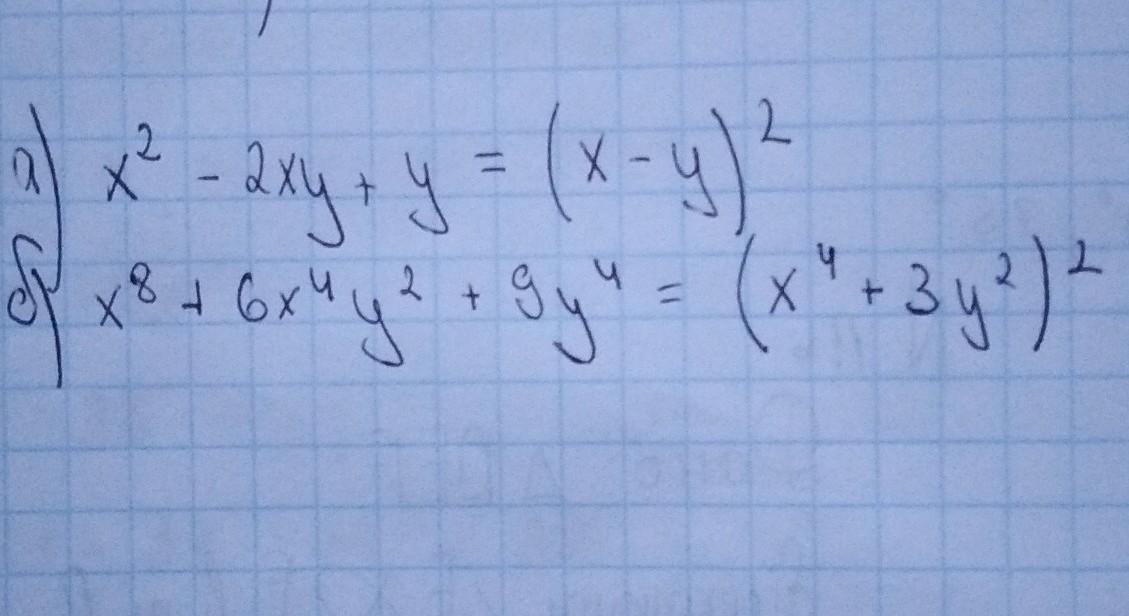 а) x² - 2xy + y = (x - y)²
б) x⁸ + 6x⁴y² + 9y⁴ = (x⁴ + 3y²)²